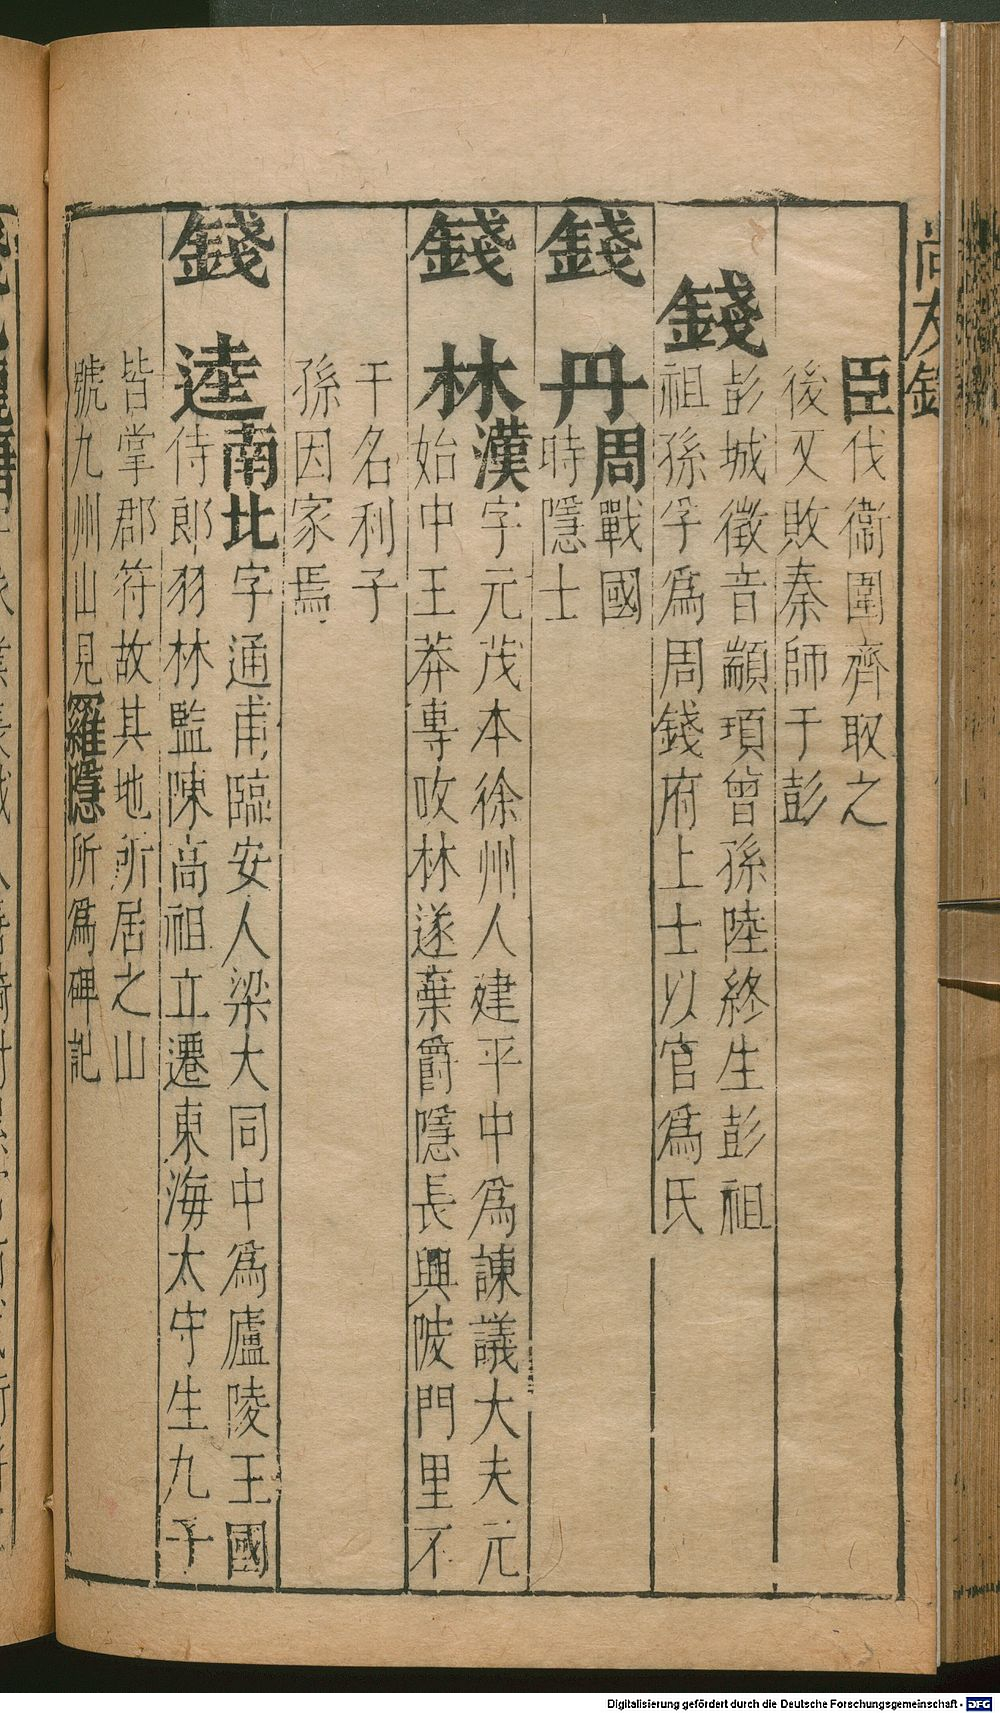 尚友錄
臣伐衞圍齊取之
後又敗秦師于彭
錢
彭城徵音顓頊曾孫陸終生彭祖
祖孫孚爲周錢府上士以官爲氏
錢丹
周戰國
時隱士
錢林
漢字元茂本徐州人建平中爲諫議大夫元
始中王莽專政林遂棄爵隱長興陂門里不
干名利子
孫因家焉
錢逵
南北字通甫臨安人梁大同中爲廬陵王國
侍郎羽林監陳高祖立遷東海太守生九子
皆掌郡符故其地所居之山
號九州山見羅隱所爲碑記
Digitalisierung gefördert durch die Deutsche Forschungsgemeinschaft - DFG